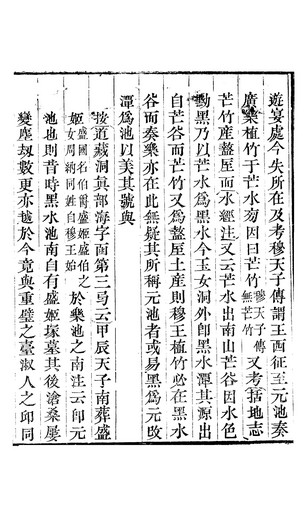 遊宴處今失所在及考穆天子傳謂王西征至元池奏
廣樂植竹于芒水㫄因曰芒竹穆天子傳無芒竹又考括地志
芒竹產盩厔而水經注又云芒水出南山芒谷因水色
黝黑乃以芒水爲黑水今玉女洞外卽黑水潭其源出
自芒谷而芒竹又爲盩厔土產則穆王植竹必在黑水
谷而奏樂亦在此無疑其所稱元池者或易黑爲元攺
潭爲池以美其號與
按道藏洞真部海字函第三号云甲辰天子南葬盛
姬盛國名伯爵盛姬盛伯之女周納同姓自穆王始於樂池之南注云卽元
池也則昔時黑水池南自有盛姬塚墓其後滄桑屢
變塵刼數更亦越於今竟與重璧之臺淑人之邱同